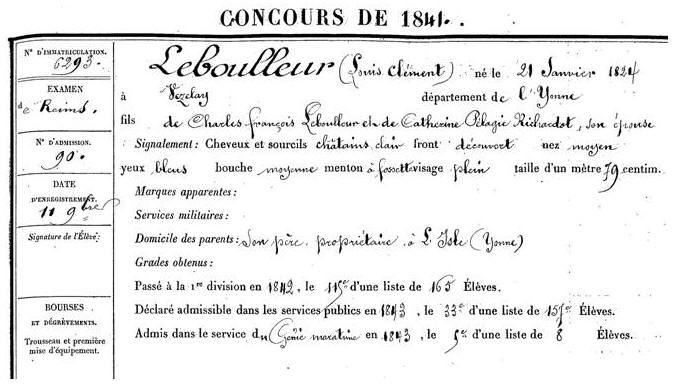 CONCOURS DE 1841.
N° D'IMMATRICULATION.
6293.
EXAMEN
de Reims.
N° D'ADMISSION.
90.
DATE
D'ENREGISTREMENT.
11 9bre
Signature de l'Élève:
BOURSES
ET DÉGRÈVEMENTS.
Trousseau et première
mise d'équipement.
Leboulleur (Louis Clément) né le 21 Janvier 1824
à Vezelay département de l'Yonne
fils de Charles François Leboulleur et de Catherine Pélagie Richardot, son épouse
Signalement: Cheveux et sourcils châtains clair front découvert nez moyen
yeux bleus bouche moyenne menton à fossette visage plein taille d'un mètre 79 centim.
Marques apparentes:
Services militaires:
Domicile des parents: Son père, propriétaire, à L'Isle (Yonne)
Grades obtenus:
Passé à la 1re division en 1842, le 115e d'une liste de 165 Élèves.
Déclaré admissible dans les services publics en 1843, le 33e d'une liste de 157 Élèves.
Admis dans le service du Génie maritime en 1843 le 5e d'une liste de 8 Élèves.